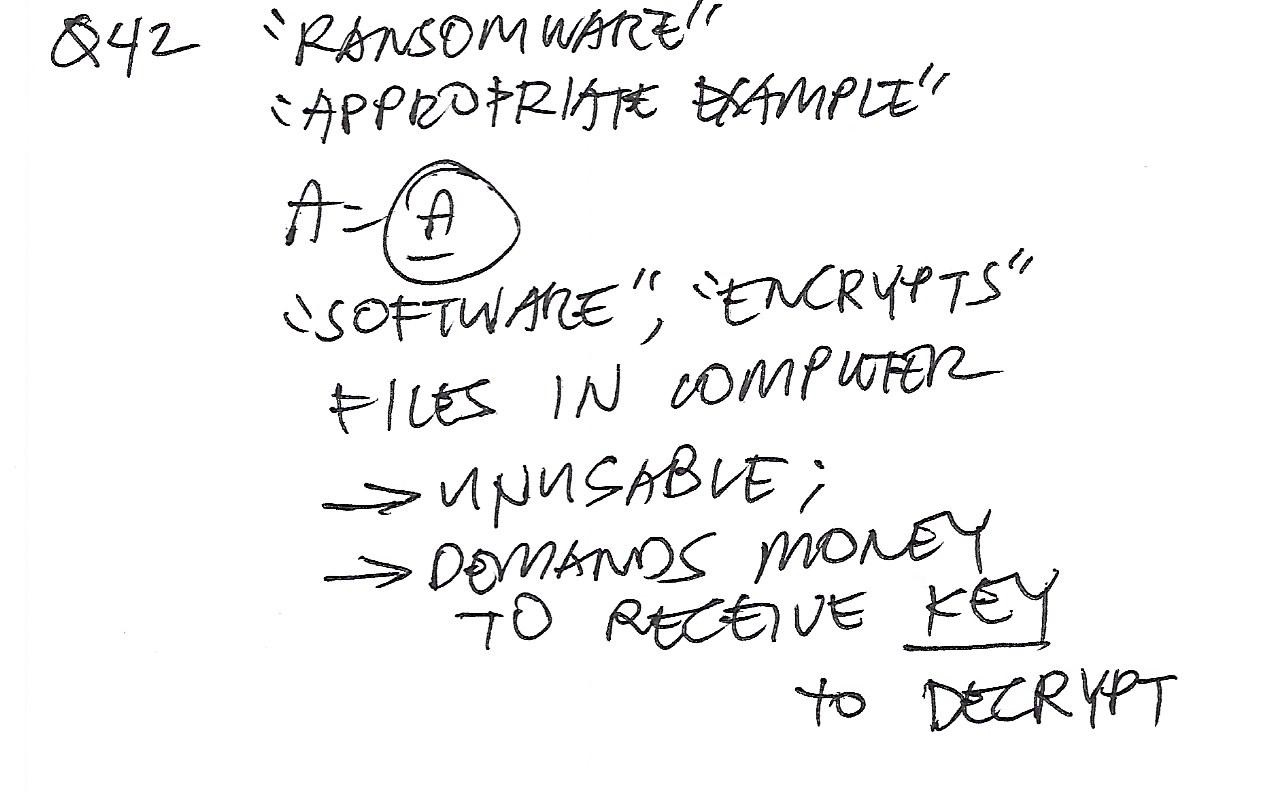 Q42 "RANSOMWARE"
"APPROPRIATE EXAMPLE"
A = A
"SOFTWARE", "ENCRYPTS"
FILES IN COMPUTER
→ UNUSABLE;
→ DEMANDS MONEY
TO RECEIVE KEY
to DECRYPT